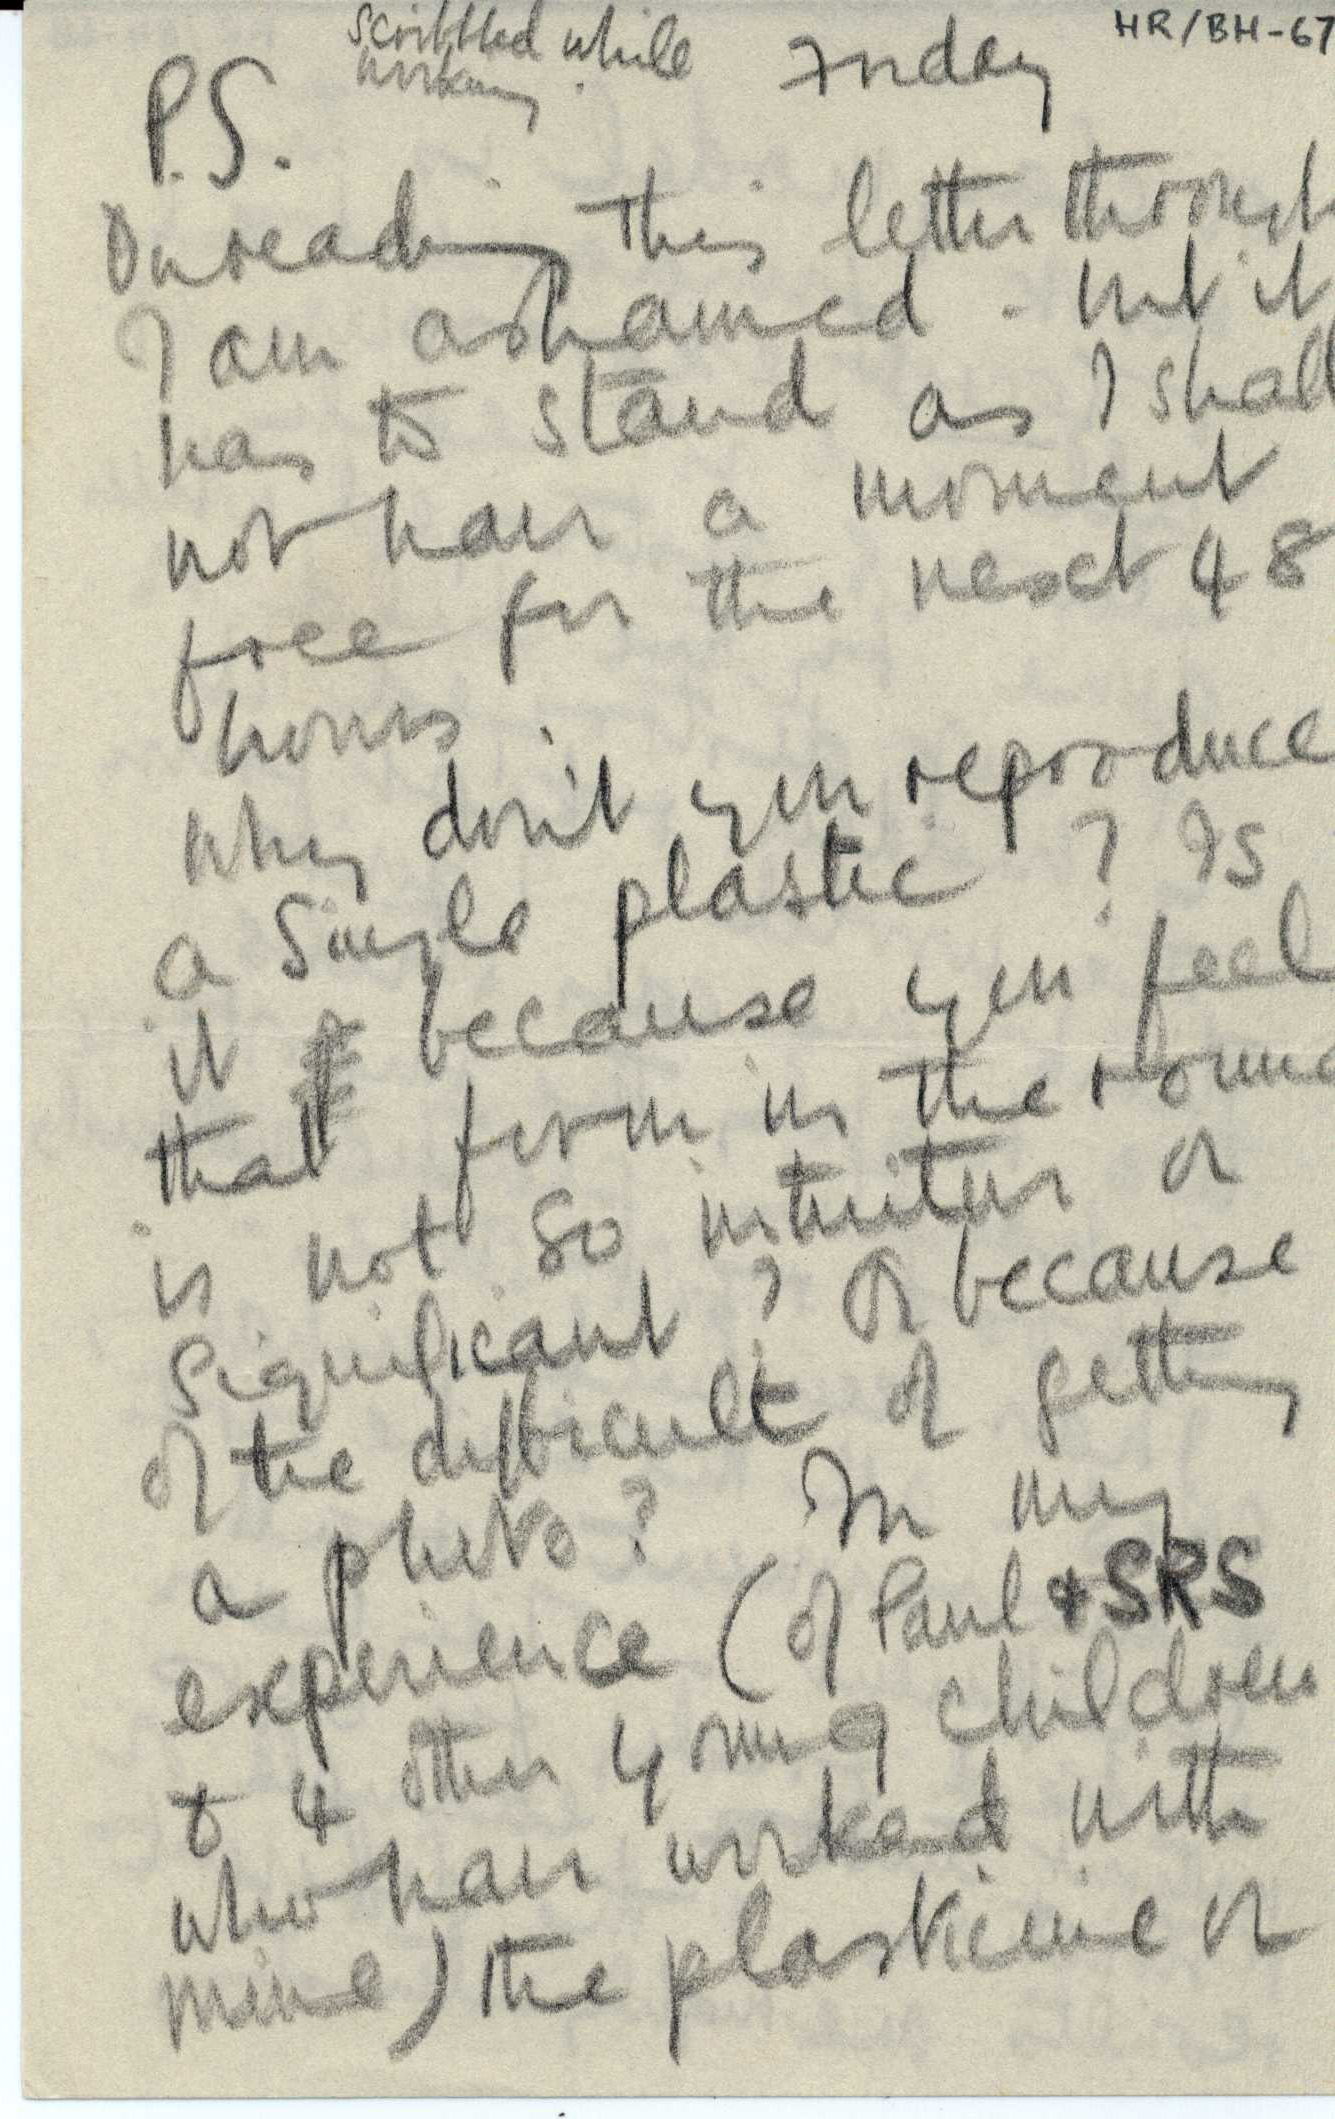 HR/BH-67
scribbled while
working.
Friday
P.S.
On reading this letter through
I am ashamed - but it
has to stand as I shall
not have a moment
free for the next 48
hours.
Why don't you reproduce
a single plastic? Is
it because you feel
that form in the round
is not so intuitive or
significant? Or because
of the difficult of getting
a photo? In my
experience (of Paul & SRS
& 4 other young children
who have worked with
mine) the plasticine or